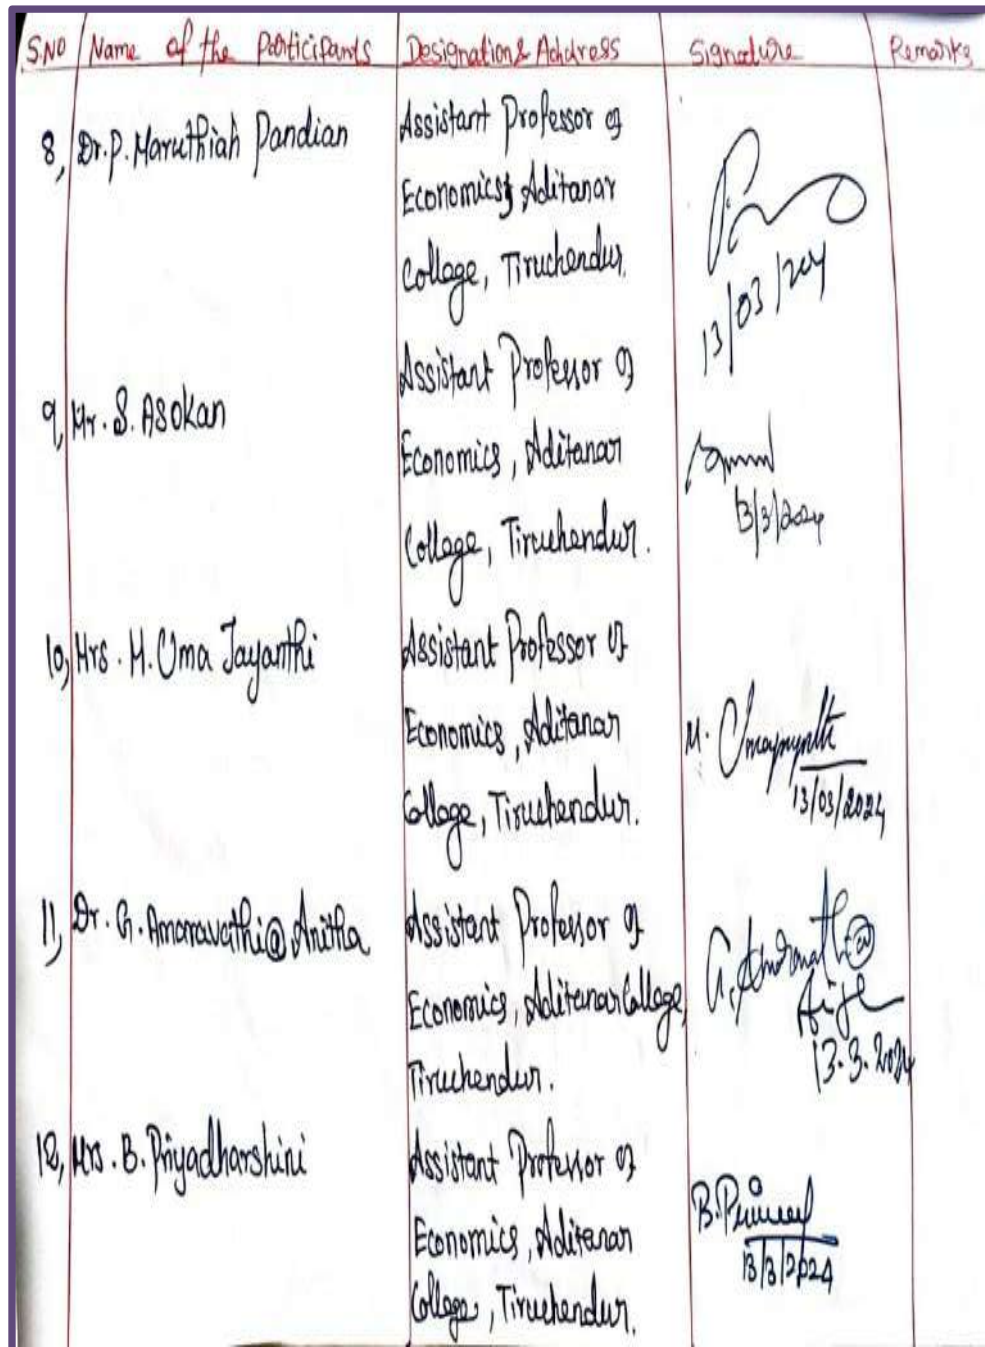 S.NO Name of the Participants Designation & Address Signature Remarks
8, Dr.P. Maruthiah Pandian Assistant Professor of
Economics, Aditanar
College, Tiruchendur.
13/03/204
9, Mr. S. Asokan Assistant Professor of
Economics, Aditanar
College, Tiruchendur.
13/3/2024
10, Mrs. M. Uma Jayanthi Assistant Professor of
Economics, Aditanar
College, Tiruchendur.
M.
13/03/2024
11, Dr. G. Amaravathi@Anitha Assistant Professor of
Economics, Aditanar College,
Tiruchendur.
13.3.2024
12, Mrs. B. Priyadharshini Assistant Professor of
Economics, Aditanar
College, Tiruchendur.
B.
13/3/2024